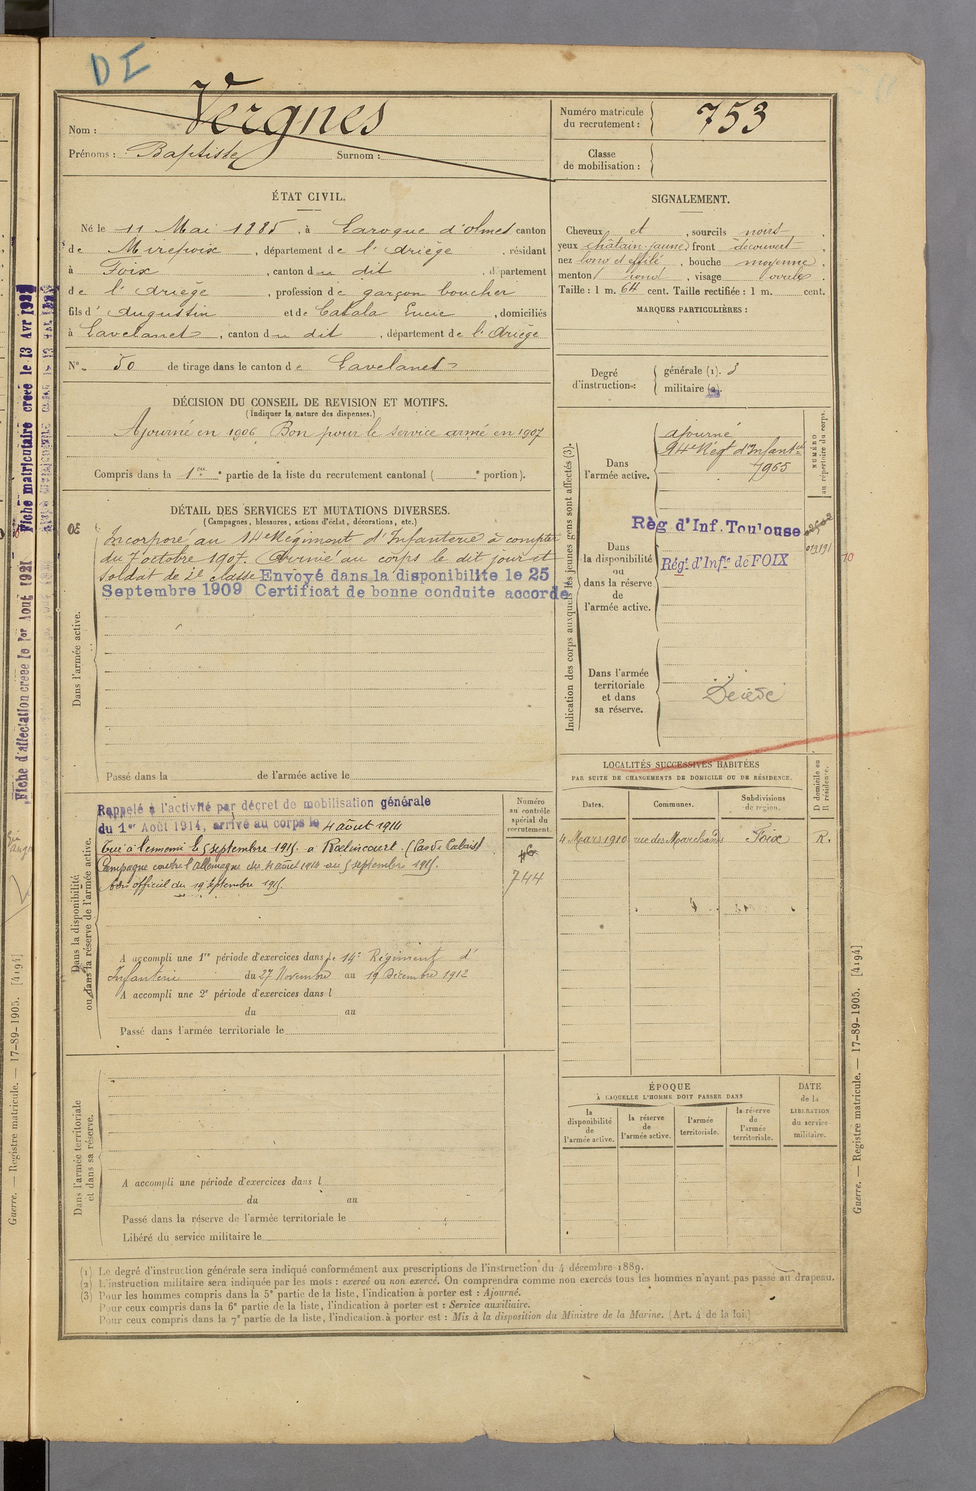 DI
Nom : Vergnes
Prénoms : Baptiste Surnom :
Numéro matricule du recrutement : 753
Classe de mobilisation :
ÉTAT CIVIL.
Né le 11 Mai 1885, à Laroque d'olmes canton
de Mirepoix, département de l'Ariège, résidant
à Foix, canton du dit, département
de l'Ariège, profession de garçon boucher
fils d'Augustin et de Catala Lucie, domiciliés
à Lavelanet, canton du dit, département de l'Ariège
N° 50 de tirage dans le canton de Lavelanet
SIGNALEMENT.
Cheveux et, sourcils noirs
yeux châtain-jaune front découvert
nez long effilé, bouche moyenne
menton rond, visage ovale
Taille : 1 m. 64 cent. Taille rectifiée : 1 m. cent.
MARQUES PARTICULIÈRES :
Degré d'instruction :
générale (1). 3
militaire (2).
DÉCISION DU CONSEIL DE REVISION ET MOTIFS.
(Indiquer la nature des dispenses.)
Ajourné en 1906 Bon pour le service armé en 1907
Compris dans la 1ère partie de la liste du recrutement cantonal ( e portion).
DÉTAIL DES SERVICES ET MUTATIONS DIVERSES.
(Campagnes, blessures, actions d'éclat, décorations, etc.)
Dans l'armée active.
Incorporé au 14e Régiment d'Infanterie à compter
du 7 octobre 1907. Arrivé au corps le dit jour et
soldat de 2e classe Envoyé dans la disponibilité le 25
Septembre 1909 Certificat de bonne conduite accordé
Passé dans la de l'armée active le
Indication des corps auxquels les jeunes gens sont affectés (3).
NUMÉRO au répertoire du corps.
Dans l'armée active.
ajourné
14e Rég d'Infantie
7965
Dans la disponibilité ou dans la réserve de l'armée active.
Règ d'Inf. Toulouse
Régt d'Infie de FOIX
Dans l'armée territoriale et dans sa réserve.
Décédé
LOCALITÉS SUCCESSIVES HABITÉES
PAR SUITE DE CHANGEMENTS DE DOMICILE OU DE RÉSIDENCE.
Dates. Communes. Subdivisions de région. D domicile ou R résidence.
4 Mars 1910 rue des Marchands Foix R.
Dans la disponibilité ou dans la réserve de l'armée active.
Numéro au contrôle spécial du recrutement.
744
Rappelé à l'activité par décret de mobilisation générale
du 1er Août 1914, arrivé au corps le 4 août 1914
Tué à l'ennemi le 5 septembre 1915 à Roclincourt (Pas de Calais)
Campagne contre l'Allemagne du 4 août 1914 au 5 septembre 1915.
Avis officiel du 19 septembre 1915
A accompli une 1re période d'exercices dans le 14e Régiment d'
Infanterie du 27 Novembre au 19 Décembre 1912
A accompli une 2e période d'exercices dans l
du au
Passé dans l'armée territoriale le
Dans l'armée territoriale et dans sa réserve.
A accompli une période d'exercices dans l
du au
Passé dans la réserve de l'armée territoriale le
Libéré du service militaire le
ÉPOQUE
À LAQUELLE L'HOMME DOIT PASSER DANS
la disponibilité de l'armée active.
la réserve de l'armée active.
l'armée territoriale.
la réserve de l'armée territoriale.
DATE de la LIBÉRATION du service militaire.
(1) Le degré d'instruction générale sera indiqué conformément aux prescriptions de l'instruction du 4 décembre 1889.
(2) L'instruction militaire sera indiquée par les mots : exercé ou non exercé. On comprendra comme non exercés tous les hommes n'ayant pas passé au drapeau.
(3) Pour les hommes compris dans la 5e partie de la liste, l'indication à porter est : Ajourné.
Pour ceux compris dans la 6e partie de la liste, l'indication à porter est : Service auxiliaire.
Pour ceux compris dans la 7e partie de la liste, l'indication à porter est : Mis à la disposition du Ministre de la Marine. (Art. 4 de la loi.)
Guerre. — Registre matricule. — 17-89-1905. [4194]
Guerre. — Registre matricule. — 17-89-1905. [4194]
Fiche d'affectation créée le 1er Août 1921
Fiche matriculaire créée le 13 Avr